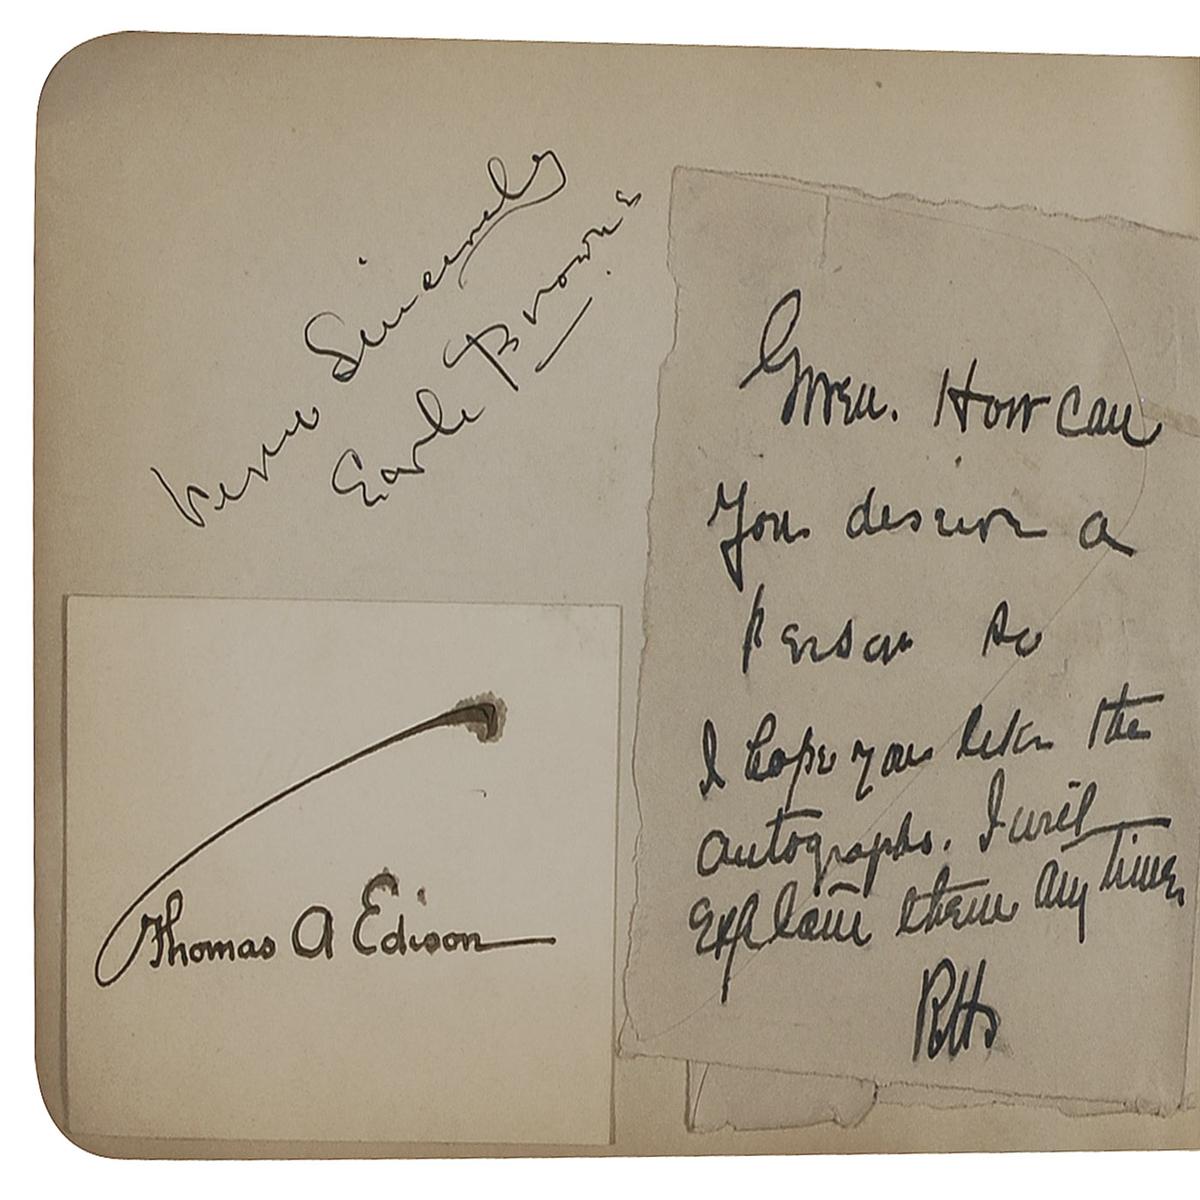 Very Sincerely
Earle Browne
Thomas A Edison
Gwen. How can
You desire a
Person so
I hope you like the
autographs. I will
Explain them any time